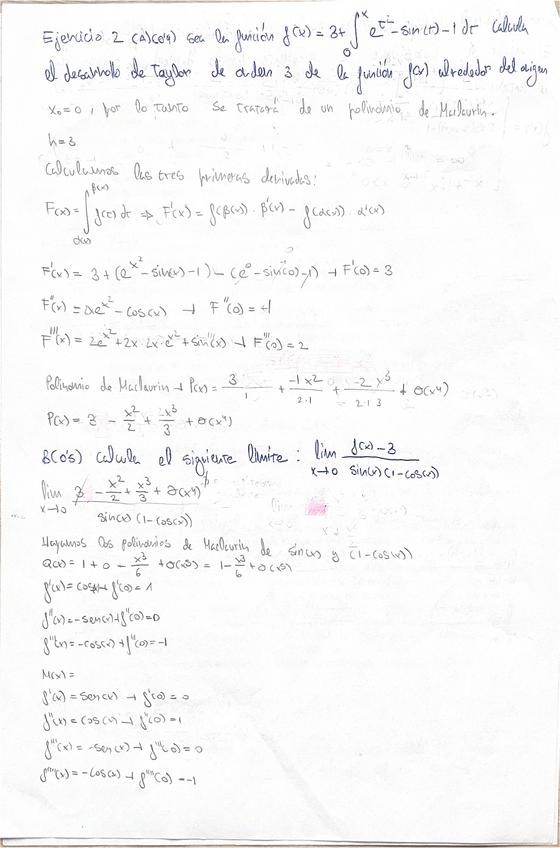 Ejercicio 2 (A)(0'4) sea la función f(x) = 3+ ∫₀ˣ e^(t²) - sin(t) - 1 dt calcula
el desarrollo de Taylor de orden 3 de la función f(x) alrededor del origen
x₀=0, por lo tanto se tratará de un polinomio de Maclaurin.
n=3
Calculamos las tres primeras derivadas:
F(x) = ∫_{α(x)}^{β(x)} f(t) dt ⇒ F'(x) = f(β(x)) · β'(x) - f(α(x)) · α'(x)
F'(x) = 3 + (e^(x²) - sin(x) - 1) - (e⁰ - sin(0) - 1) → F'(0) = 3
F''(x) = 2xe^(x²) - cos(x) → F''(0) = -1
F'''(x) = 2e^(x²) + 2x · 2x · e^(x²) + sin(x) → F'''(0) = 2
Polinomio de Maclaurin → P(x) = 3/1 + -1x²/2·1 + -2x³/2·1·3 + o(x⁴)
P(x) = 3 - x²/2 + x³/3 + o(x⁴)
B(0'5) calcula el siguiente límite: lim x→0 f(x) - 3 / sin(x)(1-cos(x))
lim x→0 3 - x²/2 + x³/3 + o(x⁴) / sin(x)(1-cos(x))
Hayamos los polinomios de Maclaurin de sin(x) y (1-cos(x))
Q(x) = 1 + 0 - x³/6 + o(x³) = 1 - x³/6 + o(x³)
f'(x) = cosx → f'(0) = 1
f''(x) = -sen(x) → f''(0) = 0
f'''(x) = -cos(x) → f'''(0) = -1
M(x) =
f'(x) = sen(x) → f'(0) = 0
f''(x) = cos(x) → f''(0) = 1
f'''(x) = -sen(x) → f'''(0) = 0
f''''(x) = -cos(x) → f''''(0) = -1